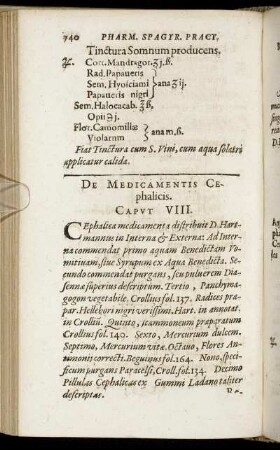 740 PHARM. SPAGYR. PRACT.
Tinctura Somnum producens.
℞. Cort. Mandragor. ʒ j. ß.
Rad. Papaveris
Sem. Hyoſciami } ana ʒ ij.
Papaveris nigri
Sem. Halocacab. ʒ ß.
Opii ℈ j.
Flor. Camomillæ } ana m. ß.
Violarum
Fiat Tinctura cum S. Vini, cum aqua ſolatri
applicatur calida.
DE MEDICAMENTIS CE-
phalicis.
CAPUT VIII.
CEphalica medicamenta diſtribuit D. Hart-
mannus in Interna & Externa: Ad Inter-
na commendat primo aquam Benedictam Vo-
mitivam, ſive Syrupum ex Aqua Benedicta. Se-
cundo commendat purgans, ſeu pulverem Dia-
ſenna ſuperius deſcriptum. Tertio, Panchyma-
gogon vegetabile. Crollius fol. 137. Radices præ-
par. Hellebori nigri veriſſimi. Hart. in annotat.
in Crollii. Quinto, ſcammoneum præparatum
Crollius fol. 140. Sexto, Mercurium dulcem.
Septimo, Mercurium vitæ. Octavo, Flores An-
timonii correcti. Beguinus fol. 164. Nono, ſpeci-
ficum purgans Paracelſi, Croll. fol. 134. Decimo
Pillulas Cephalicas ex Gummi Ladano taliter
deſcriptas.